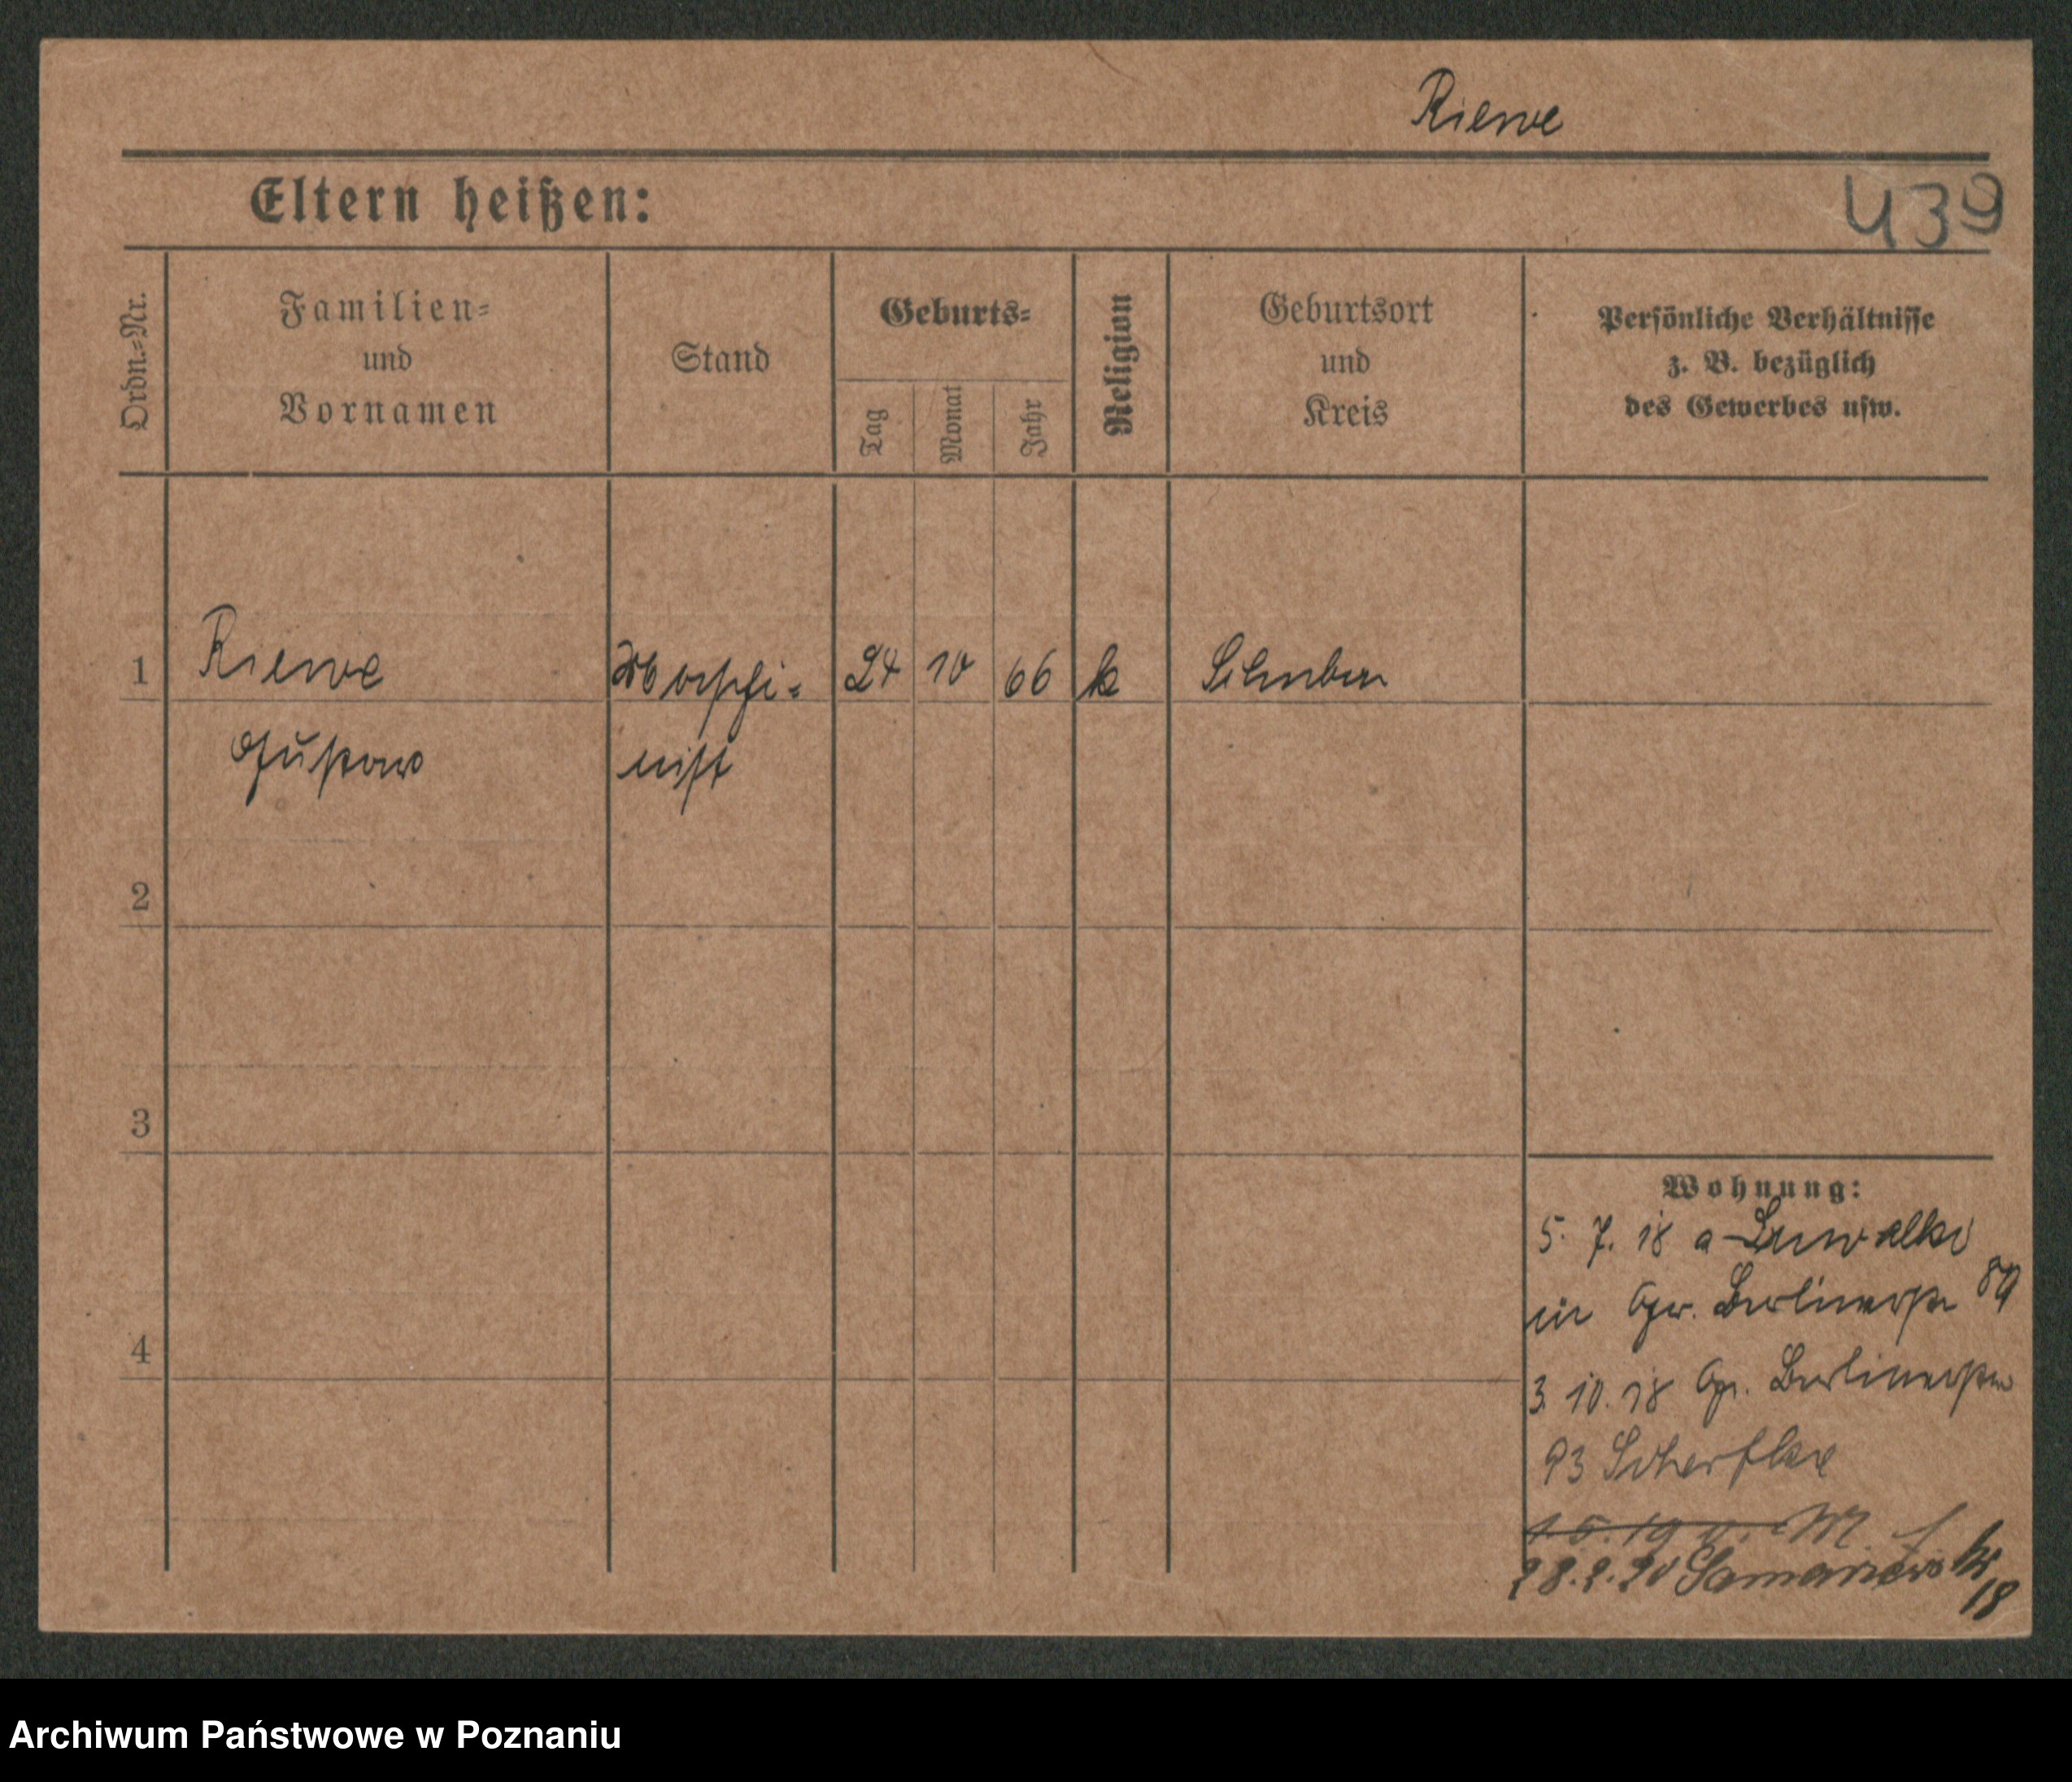 Riewe
Eltern heißen:
439
Ordn.=Nr.
Familien=
und
Vornamen
Stand
Geburts=
Tag
Monat
Jahr
Religion
Geburtsort
und
Kreis
Persönliche Verhältnisse
z. B. bezüglich
des Gewerbes usw.
1
Riewe
Maschi=
24
10
66
k
Schubin
Gustav
nist
2
3
4
Wohnung:
5. 7. 18 a Suwalki
in Gr. Berlinerstr 89
3. 10. 18 Gr. Berlinerstr
93 Scherfke
28.2.20
18
Archiwum Państwowe w Poznaniu